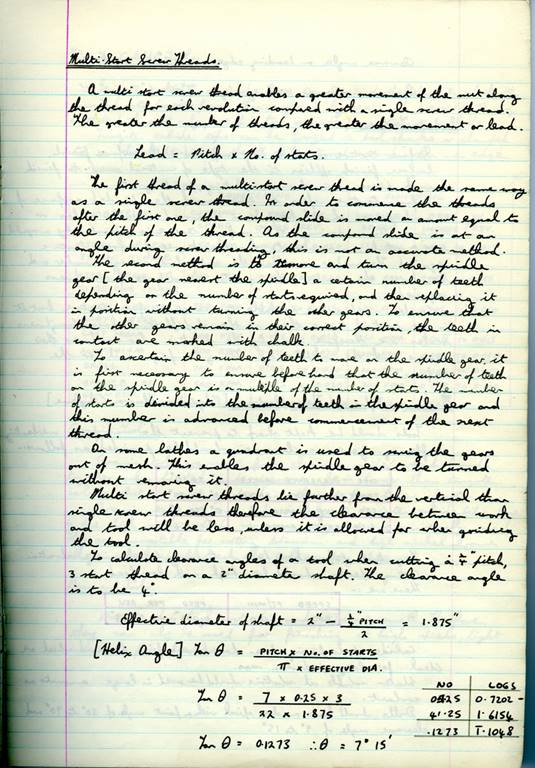 Multi-Start Screw Threads.
A multi start screw thread enables a greater movement of the nut along
the thread for each revolution compared with a single screw thread.
The greater the number of threads, the greater the movement or lead.
Lead = Pitch x No. of starts.
The first thread of a multistart screw thread is made the same way
as a single screw thread. In order to commence the threads
after the first one, the compound slide is moved an amount equal to
the pitch of the thread. As the compound slide is at an
angle during screw threading, this is not an accurate method.
The second method is to remove and turn the spindle
gear [the gear nearest the spindle] a certain number of teeth
depending on the number of starts required, and then replacing it
in position without turning the other gears. To ensure that
the other gears remain in their correct position the teeth in
contact are marked with chalk.
To ascertain the number of teeth to move on the spindle gear, it
is first necessary to ensure beforehand that the number of teeth
on the spindle gear is a multiple of the number of starts. The number
of starts is divided into the number of teeth in the spindle gear and
this number is advanced before commencement of the next
thread.
On some lathes a quadrant is used to swing the gears
out of mesh. This enables the spindle gear to be turned
without removing it.
Multi start screw threads lie farther from the vertical than
single screw threads therefore the clearance between work
and tool will be less, unless it is allowed for when grinding
the tool.
To calculate clearance angles of a tool when cutting a ¼" pitch,
3 start thread on a 2" diameter shaft. The clearance angle
is to be 4°.
Effective diameter of shaft = 2" - ¼" PITCH / 2 = 1.875"
[Helix Angle] Tan θ = PITCH x No. OF STARTS / π x EFFECTIVE DIA.
Tan θ = 7 x 0.25 x 3 / 22 x 1.875
Tan θ = 0.1273 ∴ θ = 7° 15'
NO LOGS
5.25 0.7202 -
41.25 1.6154
.1273 1̄.1048